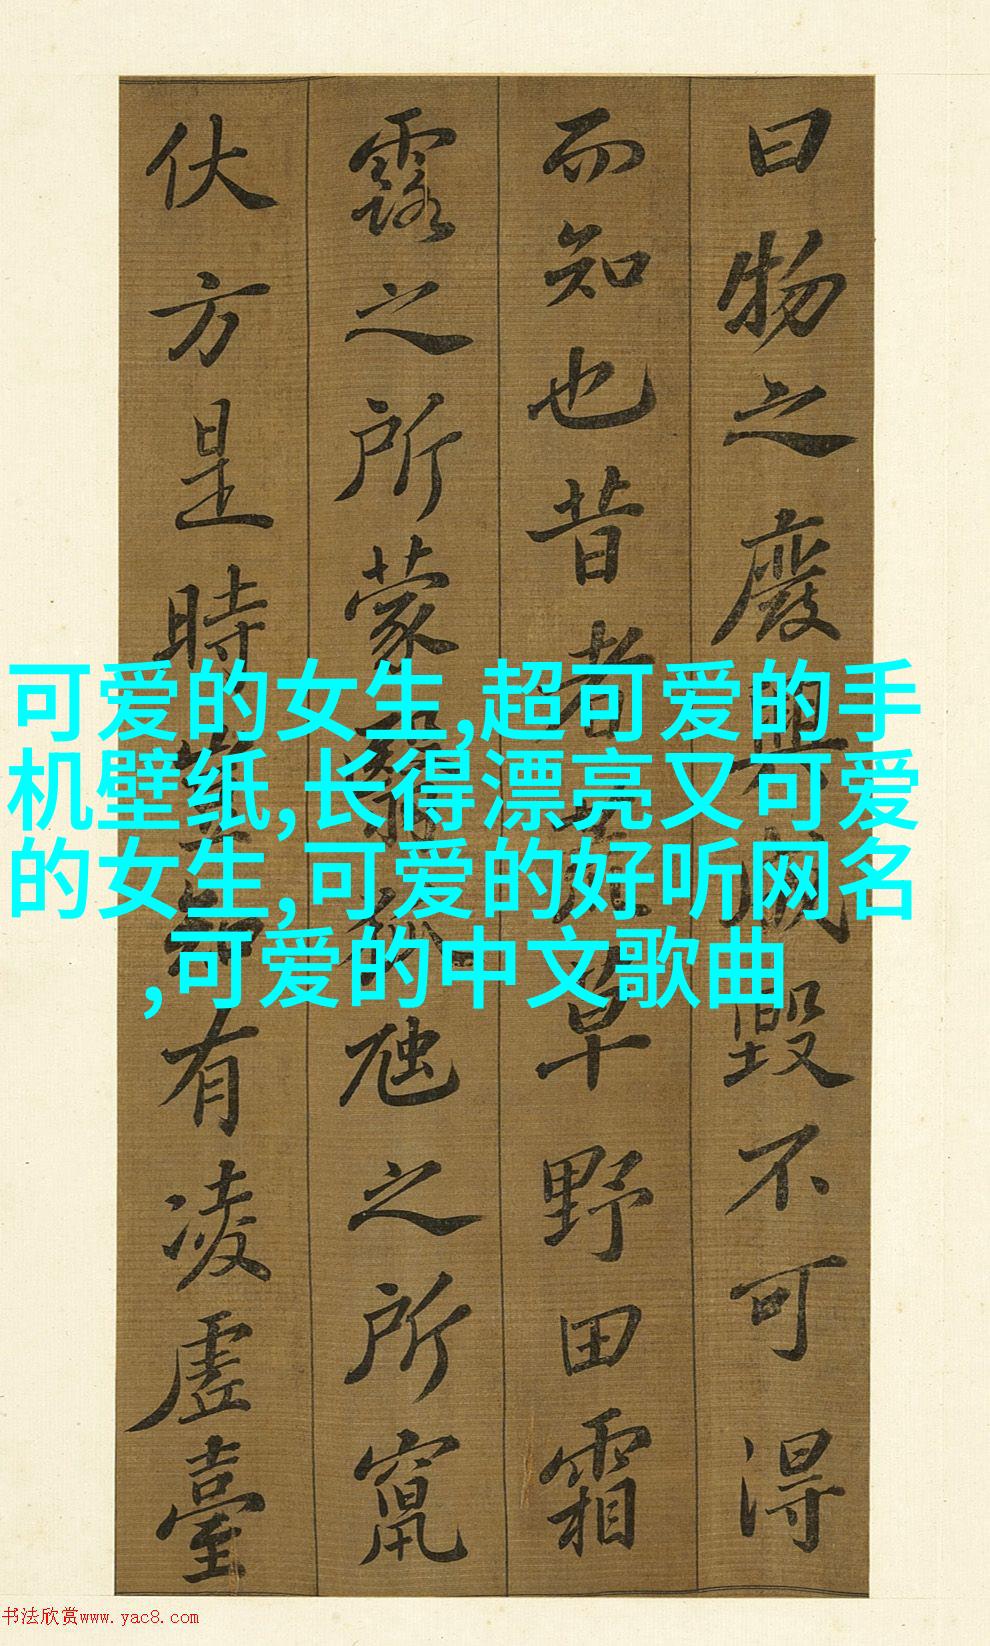 曰物之廢興成毀不可得
而知也昔者荒草野田霜
露之所蒙翳狐虺之所竄
伏方是時豈知有凌虛臺
可爱的女生,超可爱的手
机壁纸,长得漂亮又可爱
的女生,可爱的好听网名
,可爱的中文歌曲
书法欣赏www.yac8.com